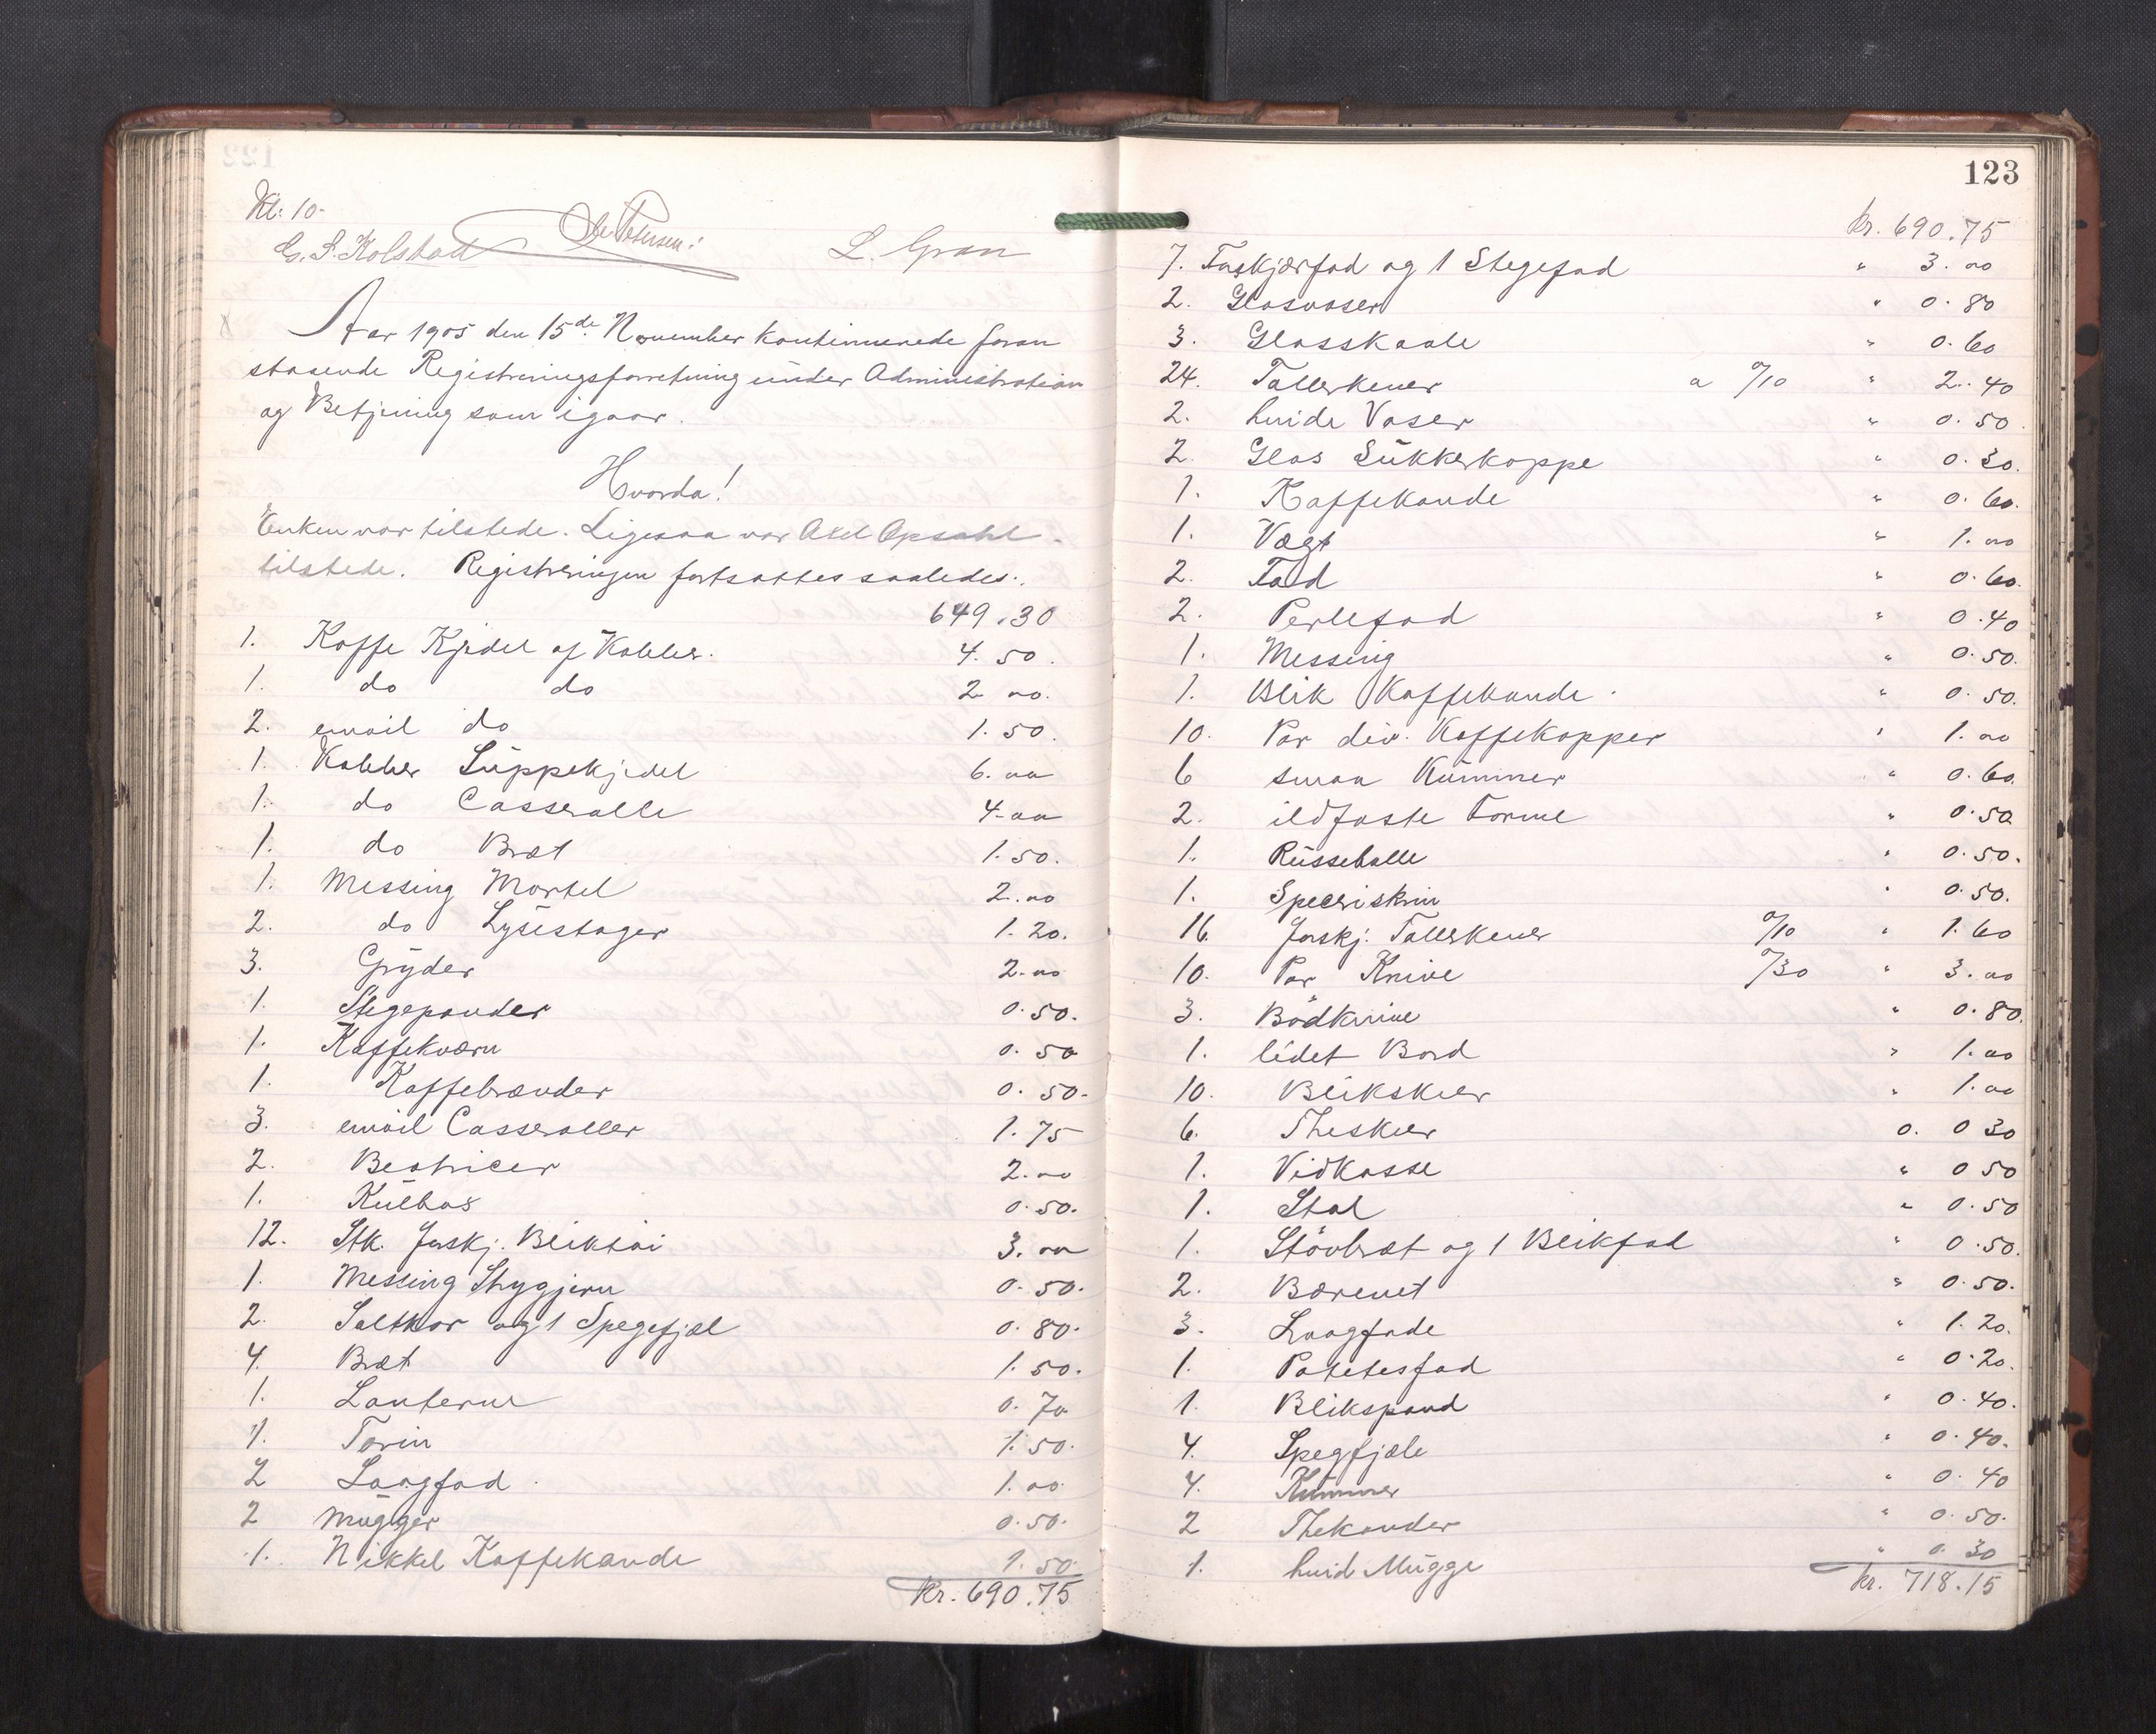 Kl: 10-
G. S. Kolstad Ole Petersen: L. Gran
Aar 1905 den 15de November kontinuerede foran
staaende Registreringsforretning under Administration
og Betjening som igaar.
Hvorda!
Enken var tilstede. Ligesaa var Axel Opsahl
tilstede. Registreringen fortsattes saaledes:
649.30
1. Kaffe Kjedel af Kobber. 4.50.
1. do do 2 00.
2. email do 1.50.
1. Kobber Suppekjedel 6.00
1. do Casserolle 4-00
1. do Bræt 1.50.
1. Messing Mortel 2.00
2. do Lysestager 1.20.
3. Gryder 2.00
1. Stegepander 0.50.
1. Kaffekværn 0.50
1. Kaffebrænder 0.50-
3. email Casseroller 1.75
2. Beatricer 2.00
1. Kulbox 0.50.
12. Stk. forskj. Bliktøi 3.00
1. Messing Strygjern 0.50.
2. Saltkar og 1 Spegefjæl 0.80.
4. Bræt 1.50.
1. Lanterne 0.70
1. Terin 1.50.
2 Laagfad 1.00
2 Mugger 0.50.
1. Nikkel Kaffekande 1.50
Kr. 690.75
123
Kr. 690.75
7. Forskjærfad og 1 Stegefad " 3.00
2. Glasvaser " 0.80
3. Glasskaale " 0.60
24. Tallerkener a 0/10 " 2.40
2. hvide Vaser " 0.50.
2 Glas Sukkerkoppe " 0.30.
1. Kaffekande " 0.60.
1. Vægt " 1.00
2. Fad " 0.60.
2. Perlefad " 0.40
1. Messing " 0.50.
1. Blik Kaffekande. " 0.50.
10. Par div. Kaffekopper " 1.00
6 smaa Kummer " 0.60.
2. ildfaste Forme " 0.50
1. Russebolle " 0.50.
1. Speceriskrin " 0.50.
16. forskj. Tallerkener 0/10 " 1.60
10. Par Knive 0/30 " 3.00
3. Bødknive " 0.80.
1. lidet Bord " 1.00
10. Blikskeer " 1.00
6. Theskeer 0. 0 30
1. Vidkasse " 0 50
1. Stol " 0.50
1. Støvbræt og 1 Blikfad " 0.50.
2. Bærenet " 0.50.
3. Laagfade " 1.20.
1. Potetesfad " 0.20.
1. Blikspand " 0.40.
4. Spegfjæle " 0.40.
4. Kummer " 0.40
2 Thekander " 0.50.
1. hvid Mugge " 0.30
Kr. 718.15